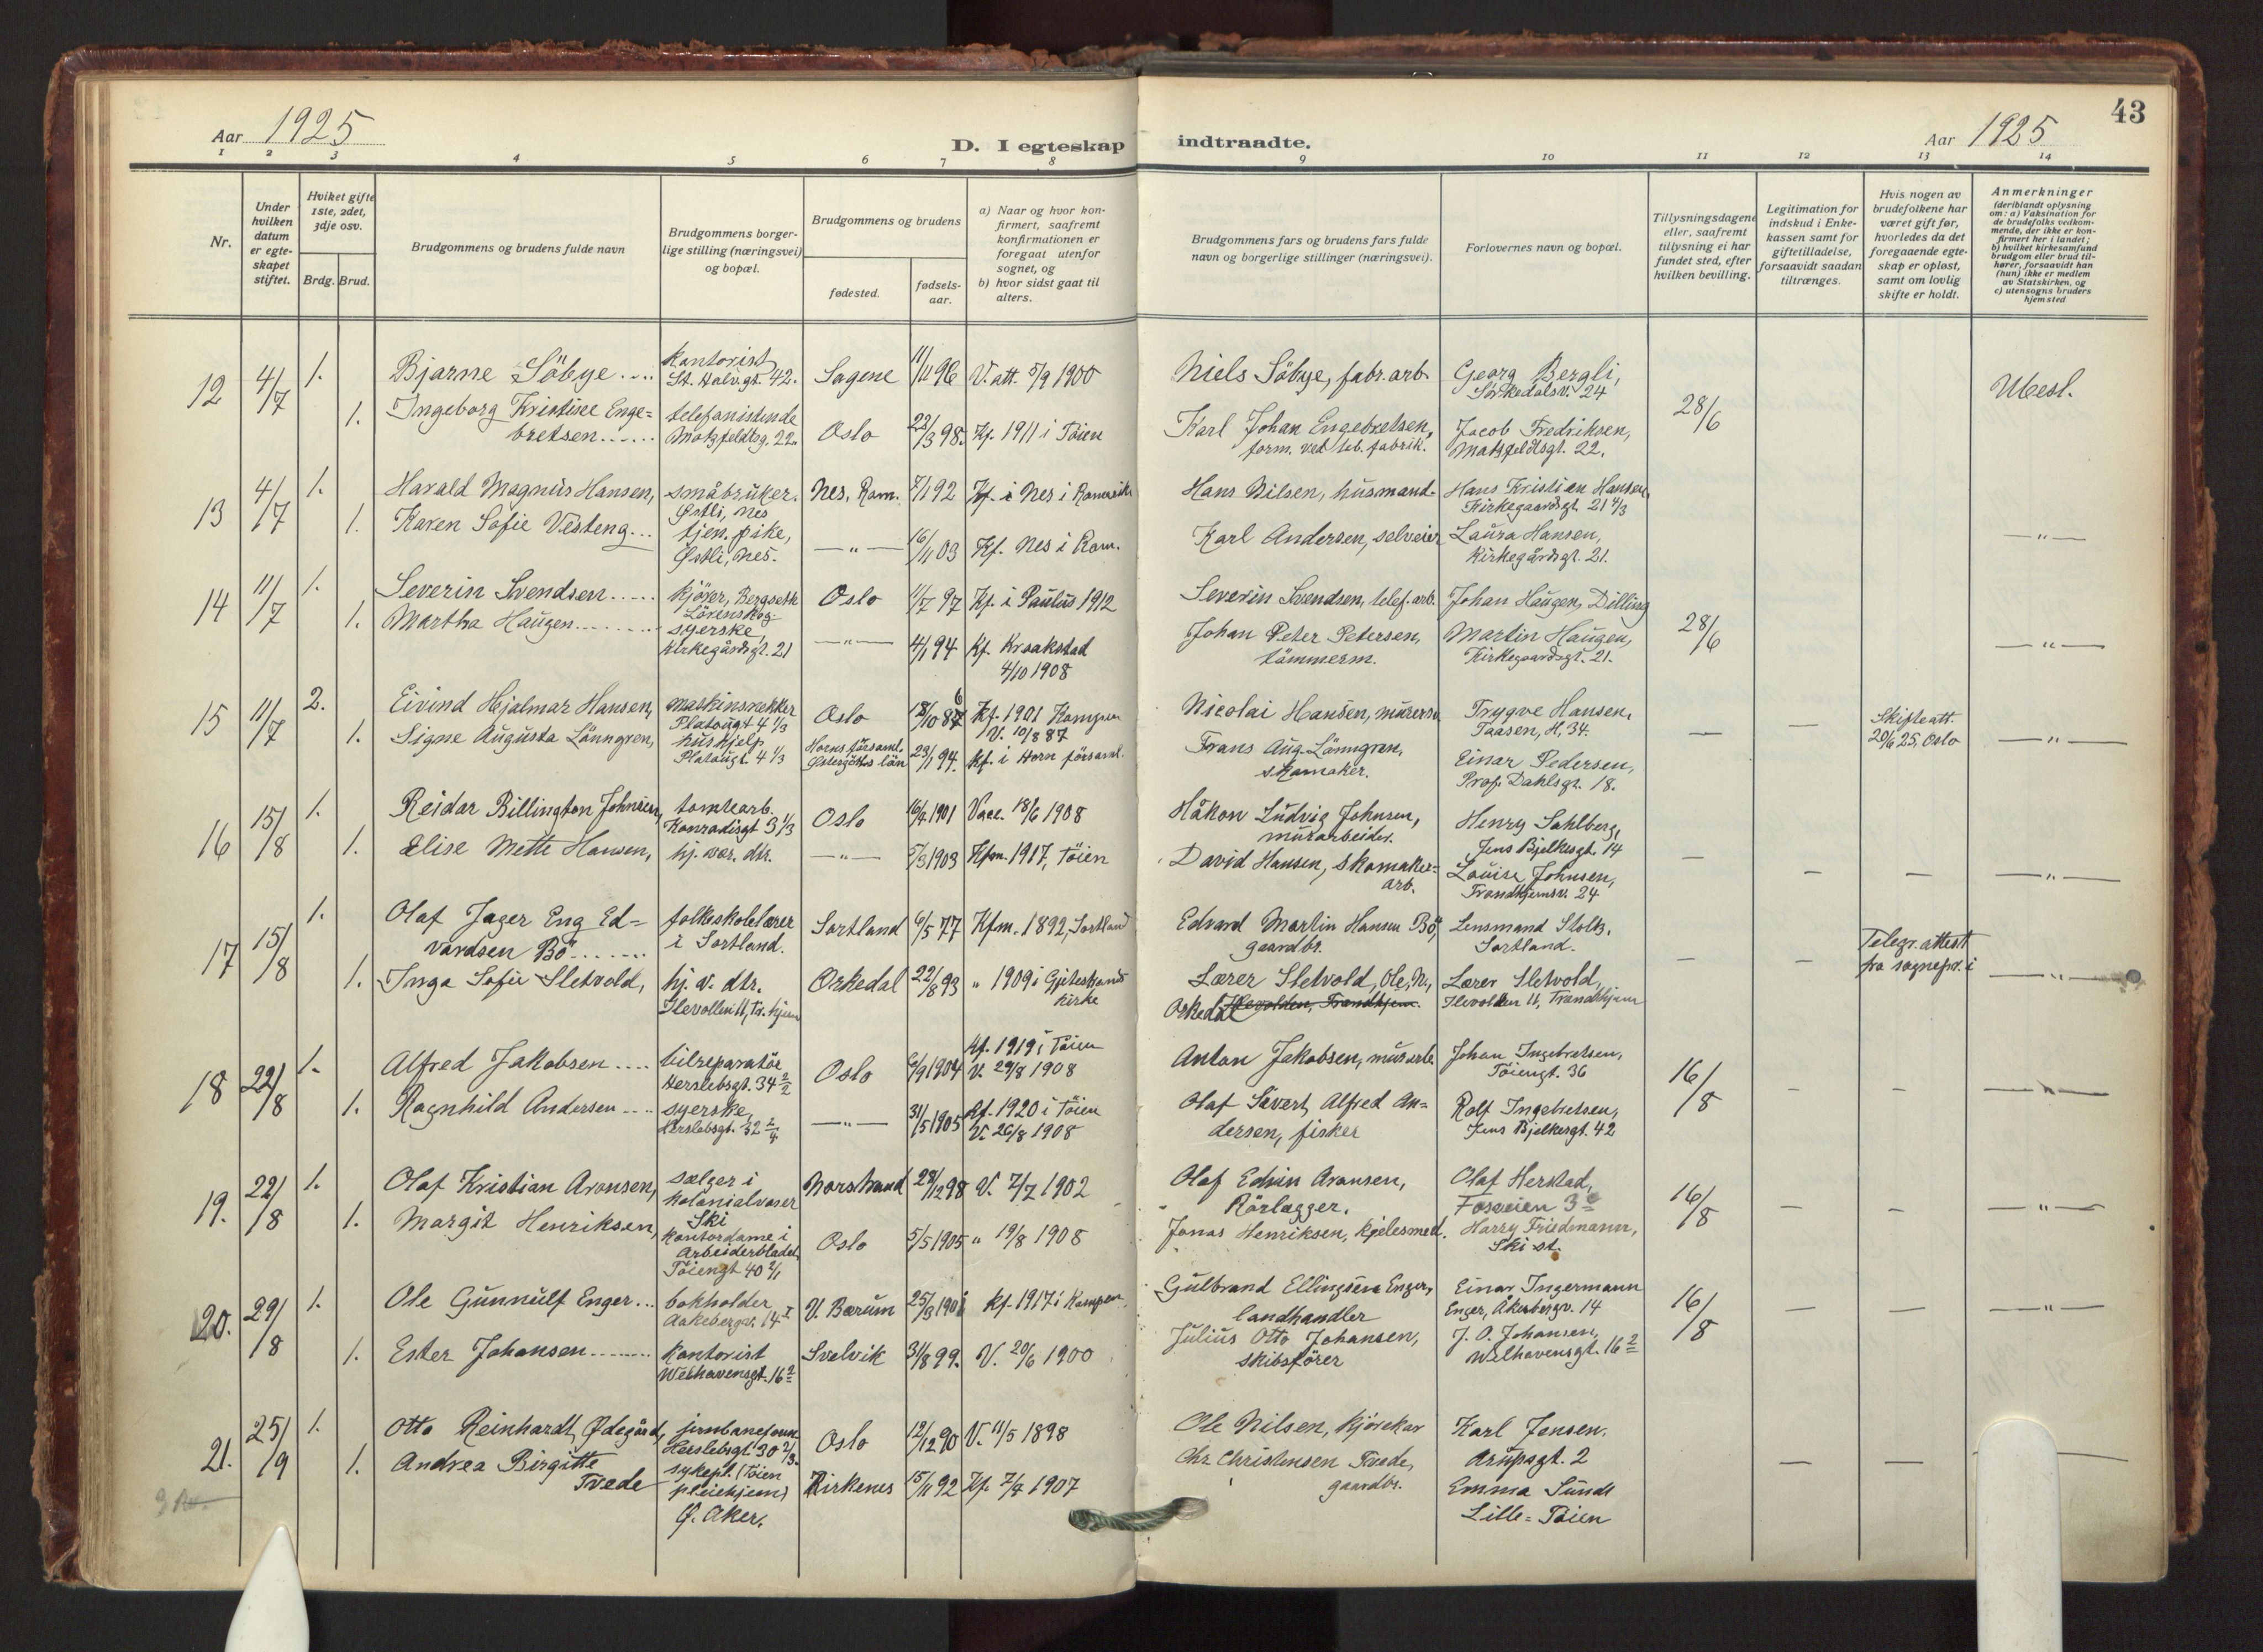 43
Aar 1925
D. I egteskap indtraadte.
Aar 1925
1 2 3 4 5 6 7 8 9 10 11 12 13 14
Nr.
Under hvilken datum er egteskapet stiftet.
Hviket gifte 1ste, 2det, 3dje osv.
Brdg. Brud.
Brudgommens og brudens fulde navn
Brudgommens borgerlige stilling (næringsvei) og bopæl.
Brudgommens og brudens
fødested.
fødselsaar.
a) Naar og hvor konfirmert, saafremt konfirmationen er foregaat utenfor sognet, og
b) hvor sidst gaat til alters.
Brudgommens fars og brudens fars fulde navn og borgerlige stillinger (næringsvei).
Forlovernes navn og bopæl.
Tillysningsdagene eller, saafremt tillysning ei har fundet sted, efter hvilken bevilling.
Legitimation for indskud i Enkekassen samt for giftetilladelse, forsaavidt saadan tiltrænges.
Hvis nogen av brudefolkene har været gift før, hvorledes da det foregaaende egteskap er opløst, samt om lovlig skifte er holdt.
Anmerkninger (deriblandt oplysning om: a) Vaksination for de brudefolks vedkommende, der ikke er konfirmert her i landet; b) hvilket kirkesamfund brudgom eller brud tilhører, forsaavidt han (hun) ikke er medlem av Statskirken, og c) utensogns bruders hjemsted
12 4/7 1. Bjarne Söbye.... kontorist St. Halv.gt. 42. Sagene 11/11 96 V. att. 5/9 1900 Niels Söbye, fabr. arb. Georg Bergli, Sörkedalsv. 24 28/6
1. Ingeborg Kristine Engebretsen...... telefonistinde Motzfeldtsg. 22. Oslo 22/3 98. Kf. 1911 i Töien Karl Johan Engebretsen, form. ved tob. fabrik. Jacob Fredriksen, Motzfeldtsgt. 22.
13 4/7 1. Harald Magnus Hansen, småbruker. Østli, Nes Nes, Rom. 7/1 92 Kf. i Nes i Romerike Hans Nilsen, husmand. Hans Kristian Hansen, Kirkegaardsgt. 21 4/3
1. Karen Sofie Vesteng... tjen. pike, Østli, Nes. —"— 16/11 03 Kf. Nes i Rom. Karl Andersen, selveier Laura Hansen, Kirkegårdsgt. 21. —"—
14 11/7 1. Severin Svendsen..... kjörer, Lörenskog Oslo 11/7 97 Kf. i Paulus 1912 Severin Svendsen, telef. arb. Johan Haugen, Dilling 28/6
1. Martha Haugen........ syerske, Kirkegårdsgt. 21 —"— 4/1 94 Kf. Kraakstad 4/10 1908 Johan Peter Petersen, tömmerm. Martin Haugen, Kirkegaardsgt. 21. —"—
15 11/7 2. Eivind Hjalmar Hansen, Platougt 4 1/3 Oslo 18/10 86 Kf. 1901 Kampen V. 10/8 87 Nicolai Hansen, Trygve Hansen, Taasen, H. 34. — — Skifteatt. 20/6 25, Oslo —"—
1. Signe Augusta Lönngren, hushjelp Platougt. 4 1/3 Horns församl. Östergötlds län 23/1 94. Kf. i Horn församl. Frans Aug. Lönngren, skomaker. Einar Pedersen, Prof. Dahlsgt. 18.
16 15/8 1. Reidar Billington Johnsen, tomtearb. Konradisgt 3 1/3 Oslo 1901 Vacc. 18/6 1908 Håkon Ludvig Johnsen, murarbeider. Henry Sahlberg, Jens Bjelkesgt. 14
1. Elise Mette Hansen, hj. vær. dtr. —"— 5/3 1903 Kfm. 1917, Töien David Hansen, skomakerarb. Louise Johnsen, Trondhjemsv. 24 — — — —"—
17 15/8 1. Olaf Jager Eng Edvardsen Bö....... folkeskolelærer i Sortland. Sortland 6/5 77 Kfm. 1892, Sortland Edvard Martin Hansen Bö, gaardbr. Lensmand Stoltz, Sortland. — — Telegr. attest fra sognepr. i —"—
1. Inga Sofie Sletvold, hj. v. dtr. Ilevollen 11, Tr.hjem Orkedal 22/8 93 " 1909 i kirke Lærer Sletvold, Ole, N., Orkedal Ilevolden, Trondhjem. Lærer Sletvold, Ilevolden 11, Trondhjem
18 22/8 1. Alfred Jakobsen.... bilreparatör Herslebsgt. 34 2/2 Oslo 6/9 1904 Kf. 1919 i Töien V. 29/8 1908 Anton Jakobsen, murarb. Johan Ingebretsen, Töiengt. 36 16/8 — — —"—
1. Ragnhild Andersen.... syerske, Herslebsgt. 32 2/4 —"— 31/5 1905 Kf. 1920 i Töien V. 26/8 1908 Olaf Sivert Alfred Andersen, fisker Rolf Ingebretsen, Jens Bjelkesgt. 42
19. 22/8 1. Olaf Kristian Aronsen, sælger i kolonialvarer Ski Norstrand 28/12 98 V. 7/7 1902 Olaf Edvin Aronsen, Rörlægger. Olaf Herstad, Fosveien 3 16/8 — — —"—
1. Margit Henriksen, kontordame i Arbeiderbladet, Töiengt 40 2/1 Oslo 5/5 1905 " 19/8 1908 Jonas Henriksen, kjelesmed. Harry Friedmann, Ski st.
20. 29/8 1. Ole Gunnulf Enger... bokholder Aakebergv. 14 I V. Bærum 25/3 1901 Kf. 1917 i Kampen Gulbrand Ellingsen Enger, landhandler Einar Ingermann Enger, Åkebergv. 14 16/8 — — —"—
1. Ester Johansen........ kontorist Welhavensgt. 16 2 Svelvik 31/8 99. V. 20/6 1900 Julius Otto Johansen, skibsförer J. O. Johansen, Welhavensgt. 16 2
21. 25/9 1. Otto Reinhardt Ødegård, Herslebsgt. 30 2/3. Oslo 12/12 90 V. 11/5 1898 Ole Nilsen, kjörekar Karl Jensen, Arupsgt. 2
1. Andrea Birgitte Tvede sykepl. (Töien pleiehjem) Ø. Aker. Kirkenes 15/11 92 Kf. 7/4 1907 Chr. Christensen Tvede, gaardbr. Emma Sundt Lille-Töien — —